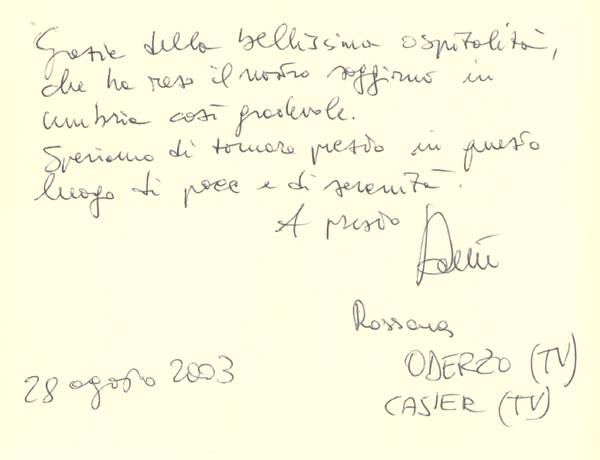 Grazie della bellissima ospitalità,
che ha reso il nostro soggiorno in
Umbria così gradevole.
Speriamo di tornare presto in questo
luogo di pace e di serenità.
A presto
Rossana
ODERZO (TV)
28 agosto 2003
CASIER (TV)